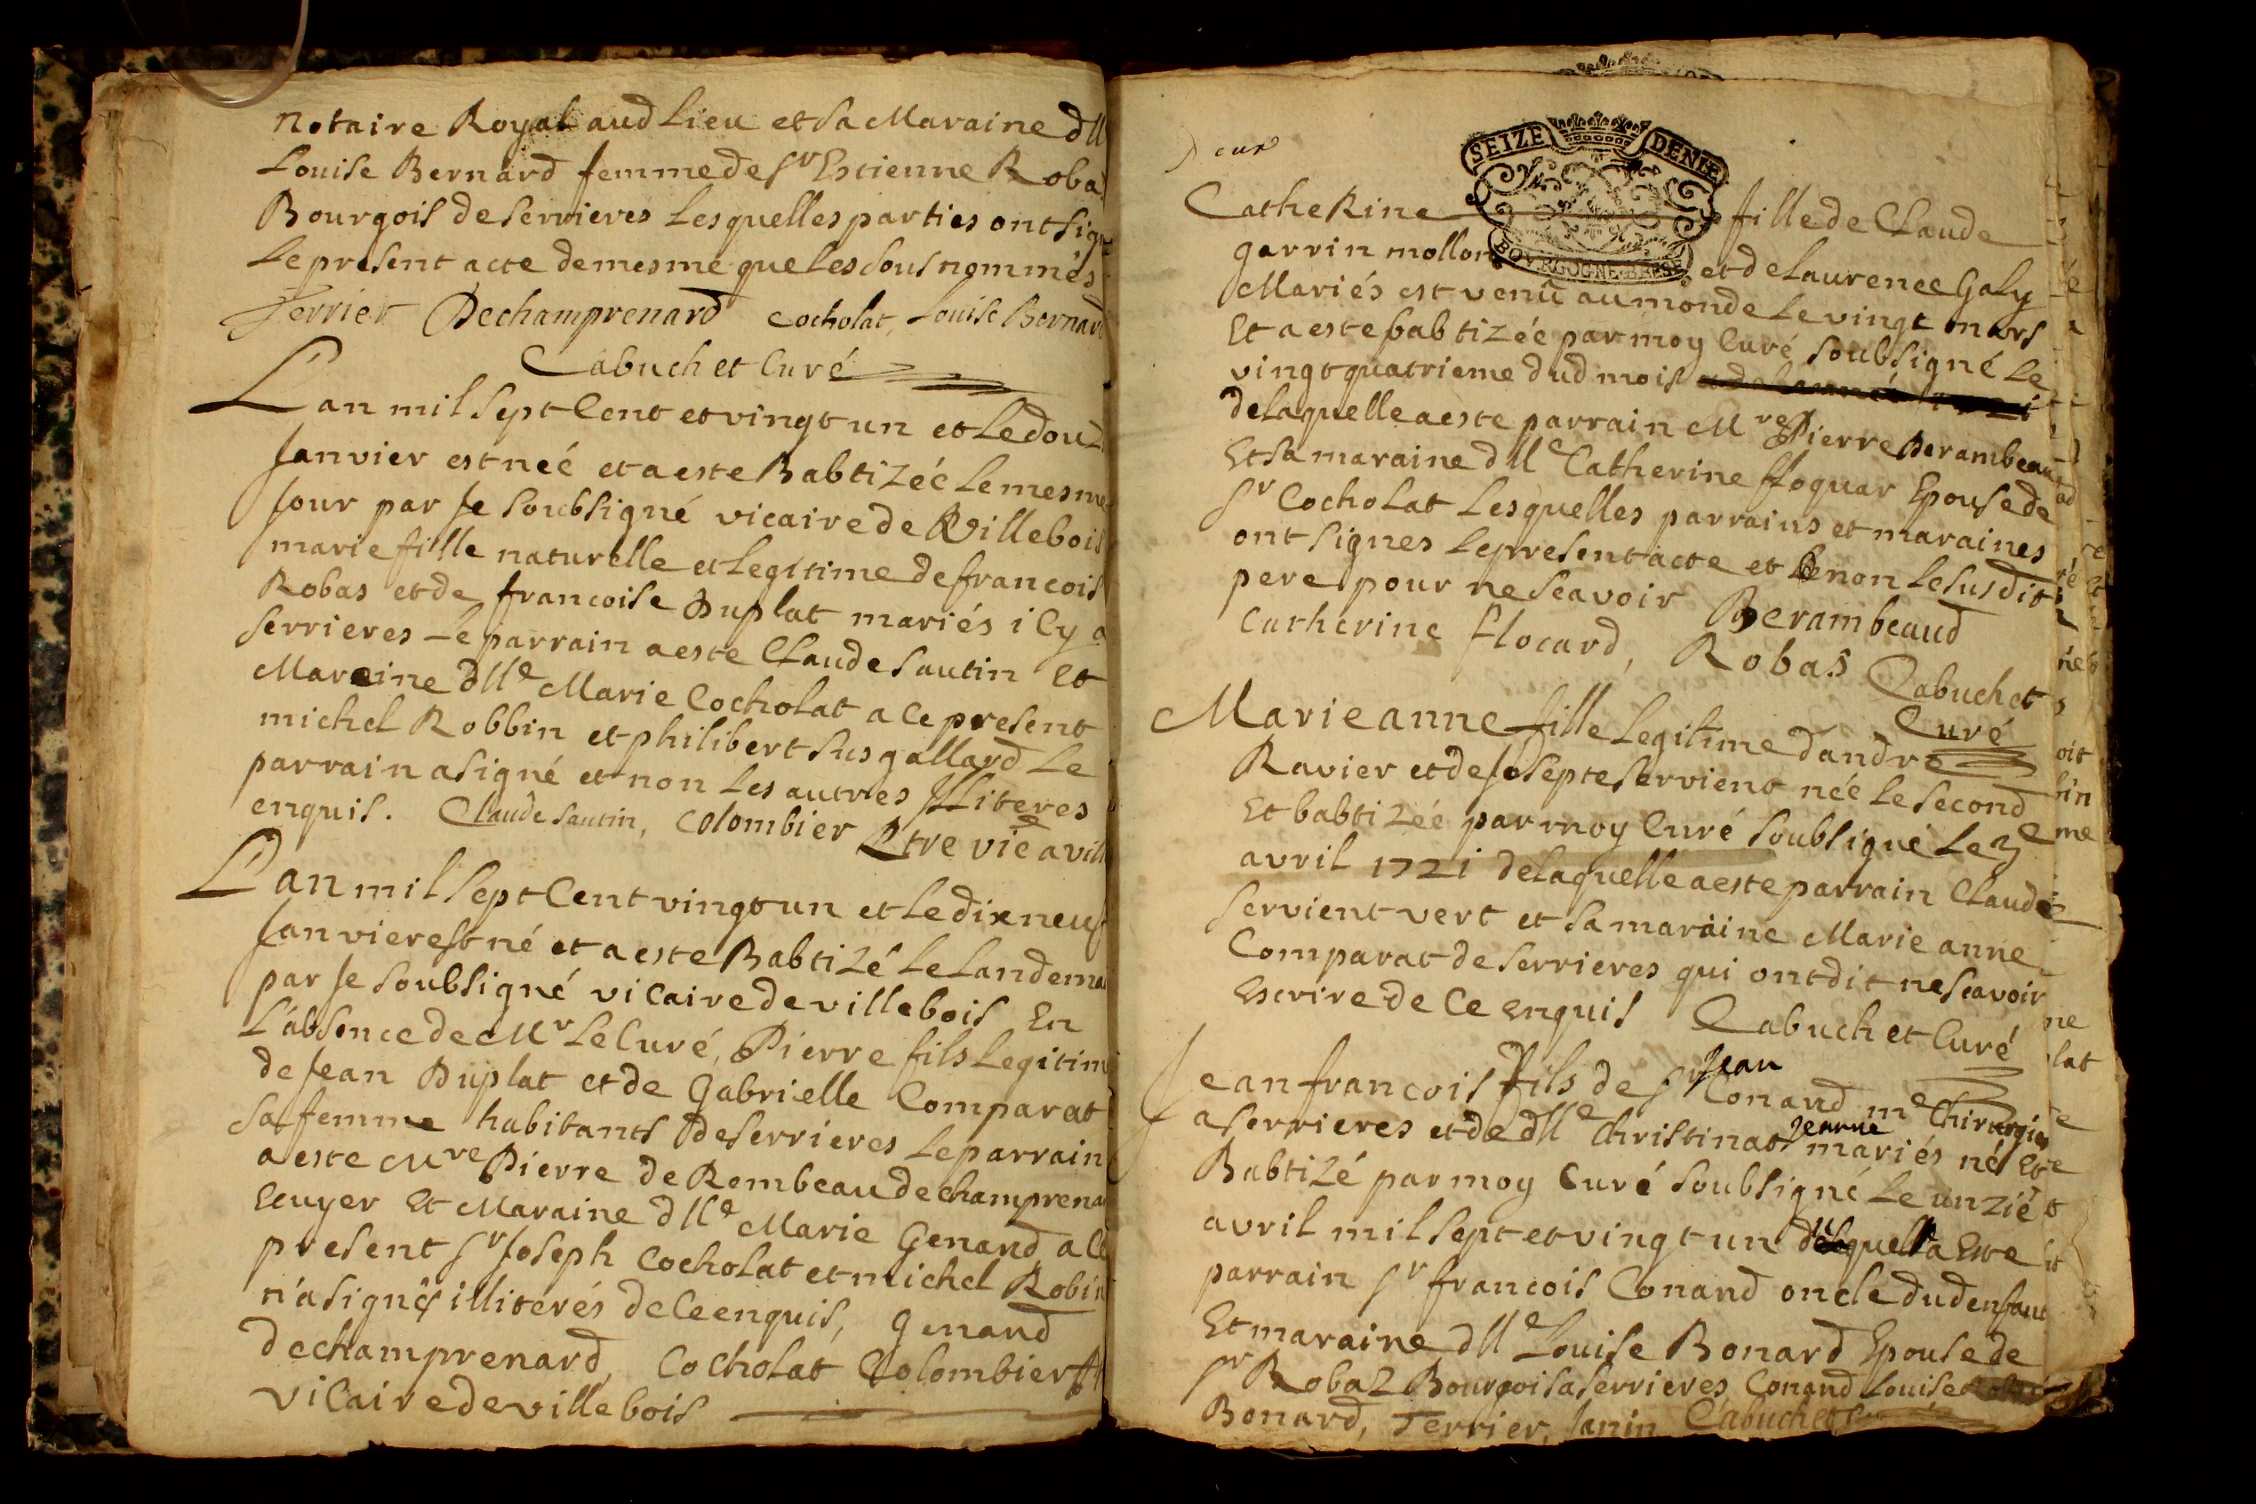 notaire Royal aud Lieu et sa Maraine dlle
Louise Bernard femme de sr Estienne Roba
Bourgois de serrieres Lesquelles parties ont sig
Le present acte de mesme que Les sous nommés
Terrier Dechamprenard Cocholat, Louise Bernard
Cabuchet Curé
Lan mil sept Cent et vingt un et Le douz
Janvier est neé et a este Babtizéé Le mesme
Jour par Je soubsigné vicaire de Villebois
marie fille naturelle et Legitime de francois
Robas et de francoise Duplat mariés i Cy a
serrieres Le parrain a este Claude sautin Et
Maraine dlle Marie Cocholat a Ce present
michel Robbin et philibert sus gallard Le
parrain a signé et non Les autres Illiteres
enquis. Claude sautin, Colombier Ptre vic a vill
Lan mil sept Cent vingt un et Le dix neuf
Janvier est né et a este Babtizé Le Landema
par Je soubsigné vicaire de villebois En
L'absence de Mr Le Curé, Pierre fils Legitim
de Jean Duplat et de Gabrielle Comparat
sa femme habitants de serrieres Le parrain
a este Mre Pierre de Rembeau de champrena
Ecuyer Et Maraine dlle Marie Genand a Ce
present sr Joseph Cocholat et michel Robin
n'a signé illiterés de Ce enquis, genand
dechamprenard, Cocholat Colombier
vicaire de villebois
SEIZE DENIE
BOVRGOGNE BRESSE
Catherine fille de Claude
garrin mollon et de Laurence Galy
Mariés est venu au monde Le vingt mars
Et a este babtizéé par moy Curé soubsigné Le
vingt quatrieme dud mois
de Laquelle a este parrain Mre Pierre Berambeau
Et sa maraine dlle Catherine ffoquar Epouse de
sr Cocholat Lesquelles parrains et maraines
ont signes Le present acte et non Le susdit
pere pour ne scavoir Berambeaud
Catherine flocard, Robas Cabuchet
Curé
Marie anne fille Legitime dandre
Ravier et de Josepte servient néé Le second
Et babtizéé par moy Curé soubsigné Le 3e
avril 1721 de Laquelle a este parrain Claude
servient vert et sa maraine Marie anne
Comparat de serrieres qui ont dit ne scavoir
Escrire de Ce Enquis Cabuchet Curé
Jean francois fils de sr Jean Conand me Chirurgien
a serrieres et de dlle Jeanne Christinat mariés né Et
Babtizé par moy Curé soubsigné Le unzie
avril mil sept et vingt un duquel a Este
parrain sr francois Conand oncle dud enfant
Et maraine dlle Louise Bonard Epouse de
sr Robaz Bourgois a serrieres Conand Louise
Bonard, Terrier, Janin Cabuchet